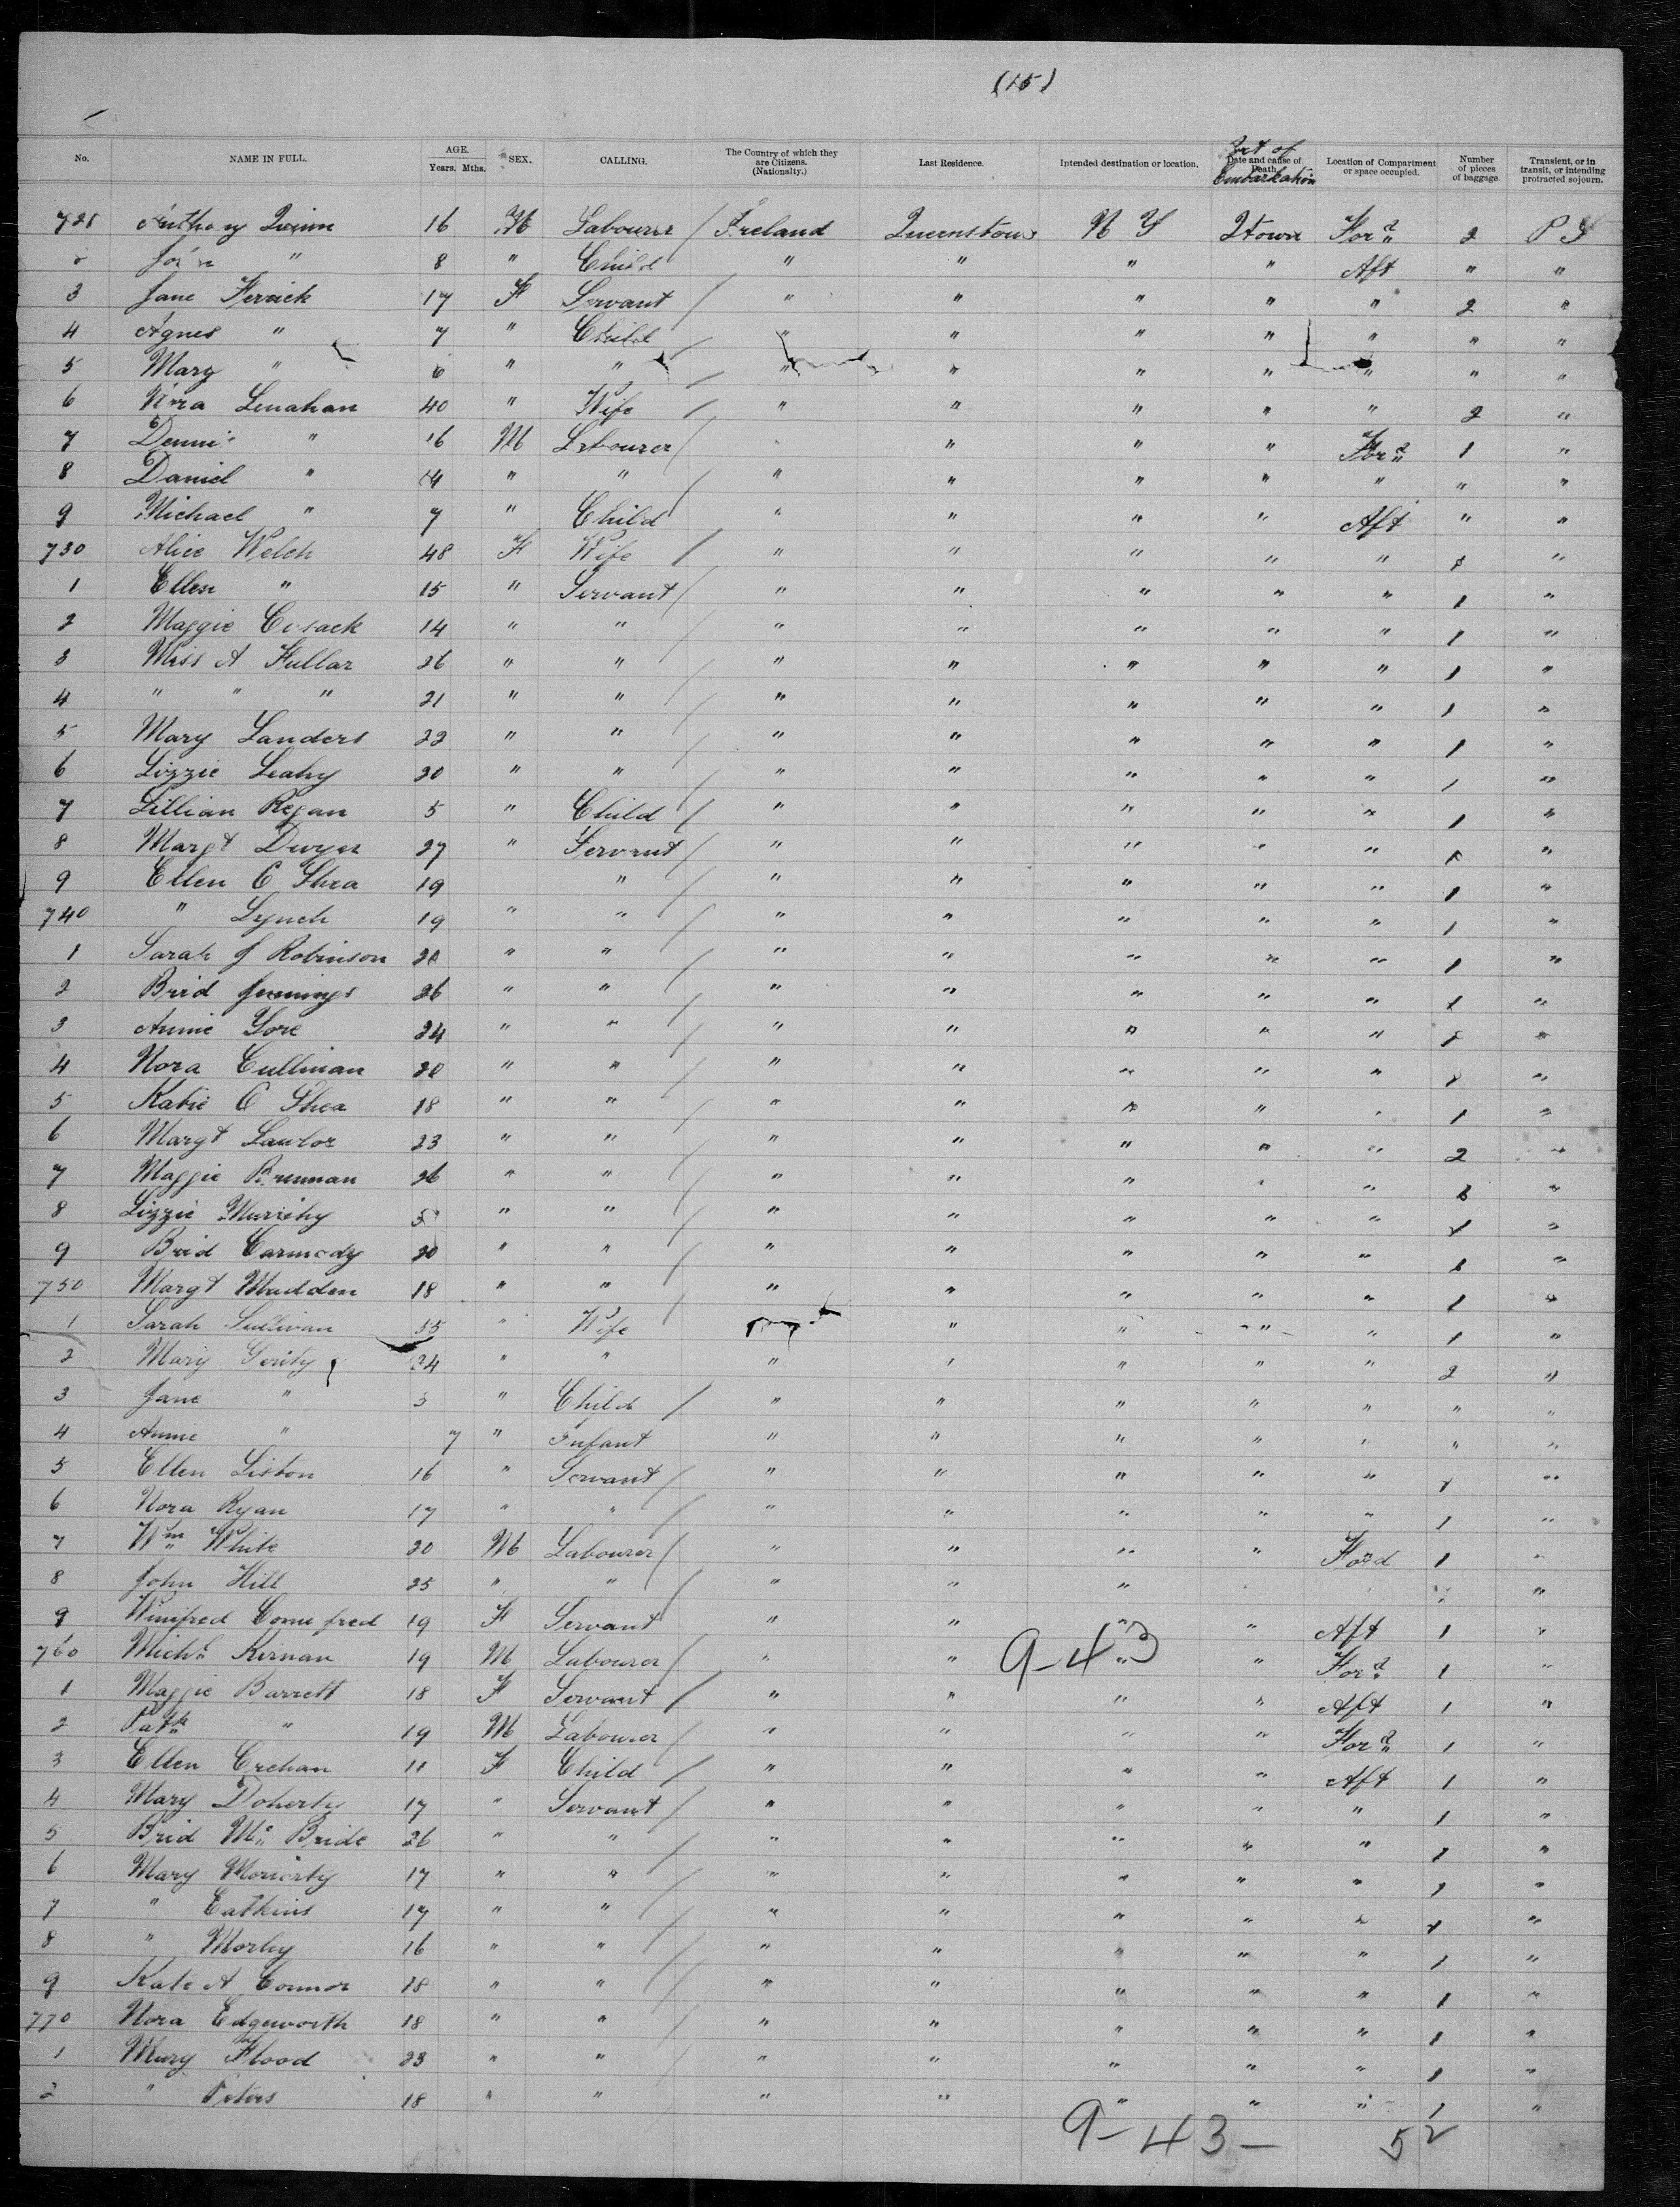 (15)
No. NAME IN FULL. AGE. Years. Mths. SEX. CALLING. The Country of which they are Citizens. (Nationalty.) Last Residence. Intended destination or location. Date and cause of Death Embarkation Location of Compartment or space occupied. Number of pieces of baggage. Transient, or in transit, or intending protracted sojourn.
721 Anthony Quinn 16 M Labourer / Ireland Queenstown N Y Qtown For'd 2 P S
2 John " 8 " Child " " " " Aft " "
3 Jane Ferrick 17 F Servant / " " " " " 2 "
4 Agnes " 7 " Child " " " " " " "
5 Mary " 6 " " / " " " " " " "
6 Nora Lenahan 40 " Wife / " " " " " 2 "
7 Dennis " 16 M Labourer / " " " " For'd 1 "
8 Daniel " 14 " " " " " " " " "
9 Michael " 7 " Child / " " " " Aft " "
730 Alice Welch 48 F Wife / " " " " " 1 "
1 Ellen " 15 " Servant / " " " " " 1 "
2 Maggie Cusack 14 " " / " " " " " 1 "
3 Miss A Fullar 26 " " / " " " " " 1 "
4 " " " 21 " " / " " " " " 1 "
5 Mary Landers 22 " " / " " " " " 1 "
6 Lizzie Leahy 20 " " / " " " " " 1 "
7 Lillian Regan 5 " Child / " " " " " 1 "
8 Margt Dwyer 27 " Servant / " " " " " 1 "
9 Ellen O Shea 19 " / " " " " " 1 "
740 " Lynch 19 " " / " " " " " 1 "
1 Sarah J Robinson " " / " " " " " 1 "
2 Brid Jennings 26 " " / " " " " " 1 "
3 Annie Gore 24 " " / " " " " " 1 "
4 Nora Cullinan 20 " " / " " " " " 1 "
5 Katie O Shea 18 " " / " " " " " 1 "
6 Margt Lawlor 23 " " / " " " " " 2 "
7 Maggie Brennan 26 " " / " " " " " 1 "
8 Lizzie " " / " " " " " 1 "
9 Brid Carmody 20 " " / " " " " " 1 "
750 Margt Madden 18 " " / " " " " " 1 "
1 Sarah Sullivan 35 " Wife / " " " " 1 "
2 Mary Gerity 24 " " " " " " " 2 "
3 Jane " 3 " Child / " " " " " " "
4 Annie " 7 " Infant " " " " " " "
5 Ellen Liston 16 " Servant / " " " " " 1 "
6 Nora Ryan 17 " " / " " " " " 1 "
7 Wm White 20 M Labourer / " " " " Ford 1 "
8 John Hill 25 " " / " " " " "
9 Winifred Comerfred 19 F Servant " " " " Aft 1 "
760 Michl Kirnan 19 M Labourer / " " " " For'd 1 "
9-43
1 Maggie Barrett 18 F Servant / " " " " Aft 1 "
2 Patk " 19 M Labourer / " " " " For'd 1 "
3 Ellen Crehan 11 F Child / " " " " Aft 1 "
4 Mary Doherty 17 " Servant / " " " " " 1 "
5 Brid Mc Bride 26 " " / " " " " " 1 "
6 Mary Moriorty 17 " " / " " " " " 1 "
7 " Eatkins 17 " " / " " " " " 1 "
8 " Morley 16 " " / " " " " " 1 "
9 Kate A Connor 18 " " / " " " " " 1 "
770 Nora Edgeworth 18 " " / " " " " " 1 "
1 Mary Flood 23 " " / " " " " " 1 "
2 " Peters 18 " " " " " " " 1 "
9-43- 52